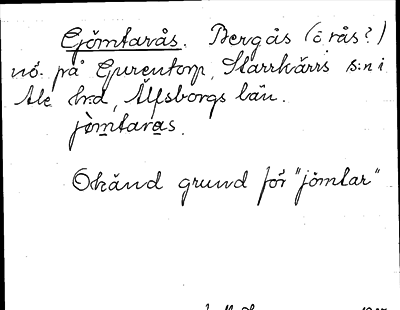 Gjömtarås. Bergås (ö. rås?)
nö. på Gurentorp, Starrkärrs s:n i
Ale hrd, Älfsborgs län.
jömtaras.
Okänd grund för "jömtar"